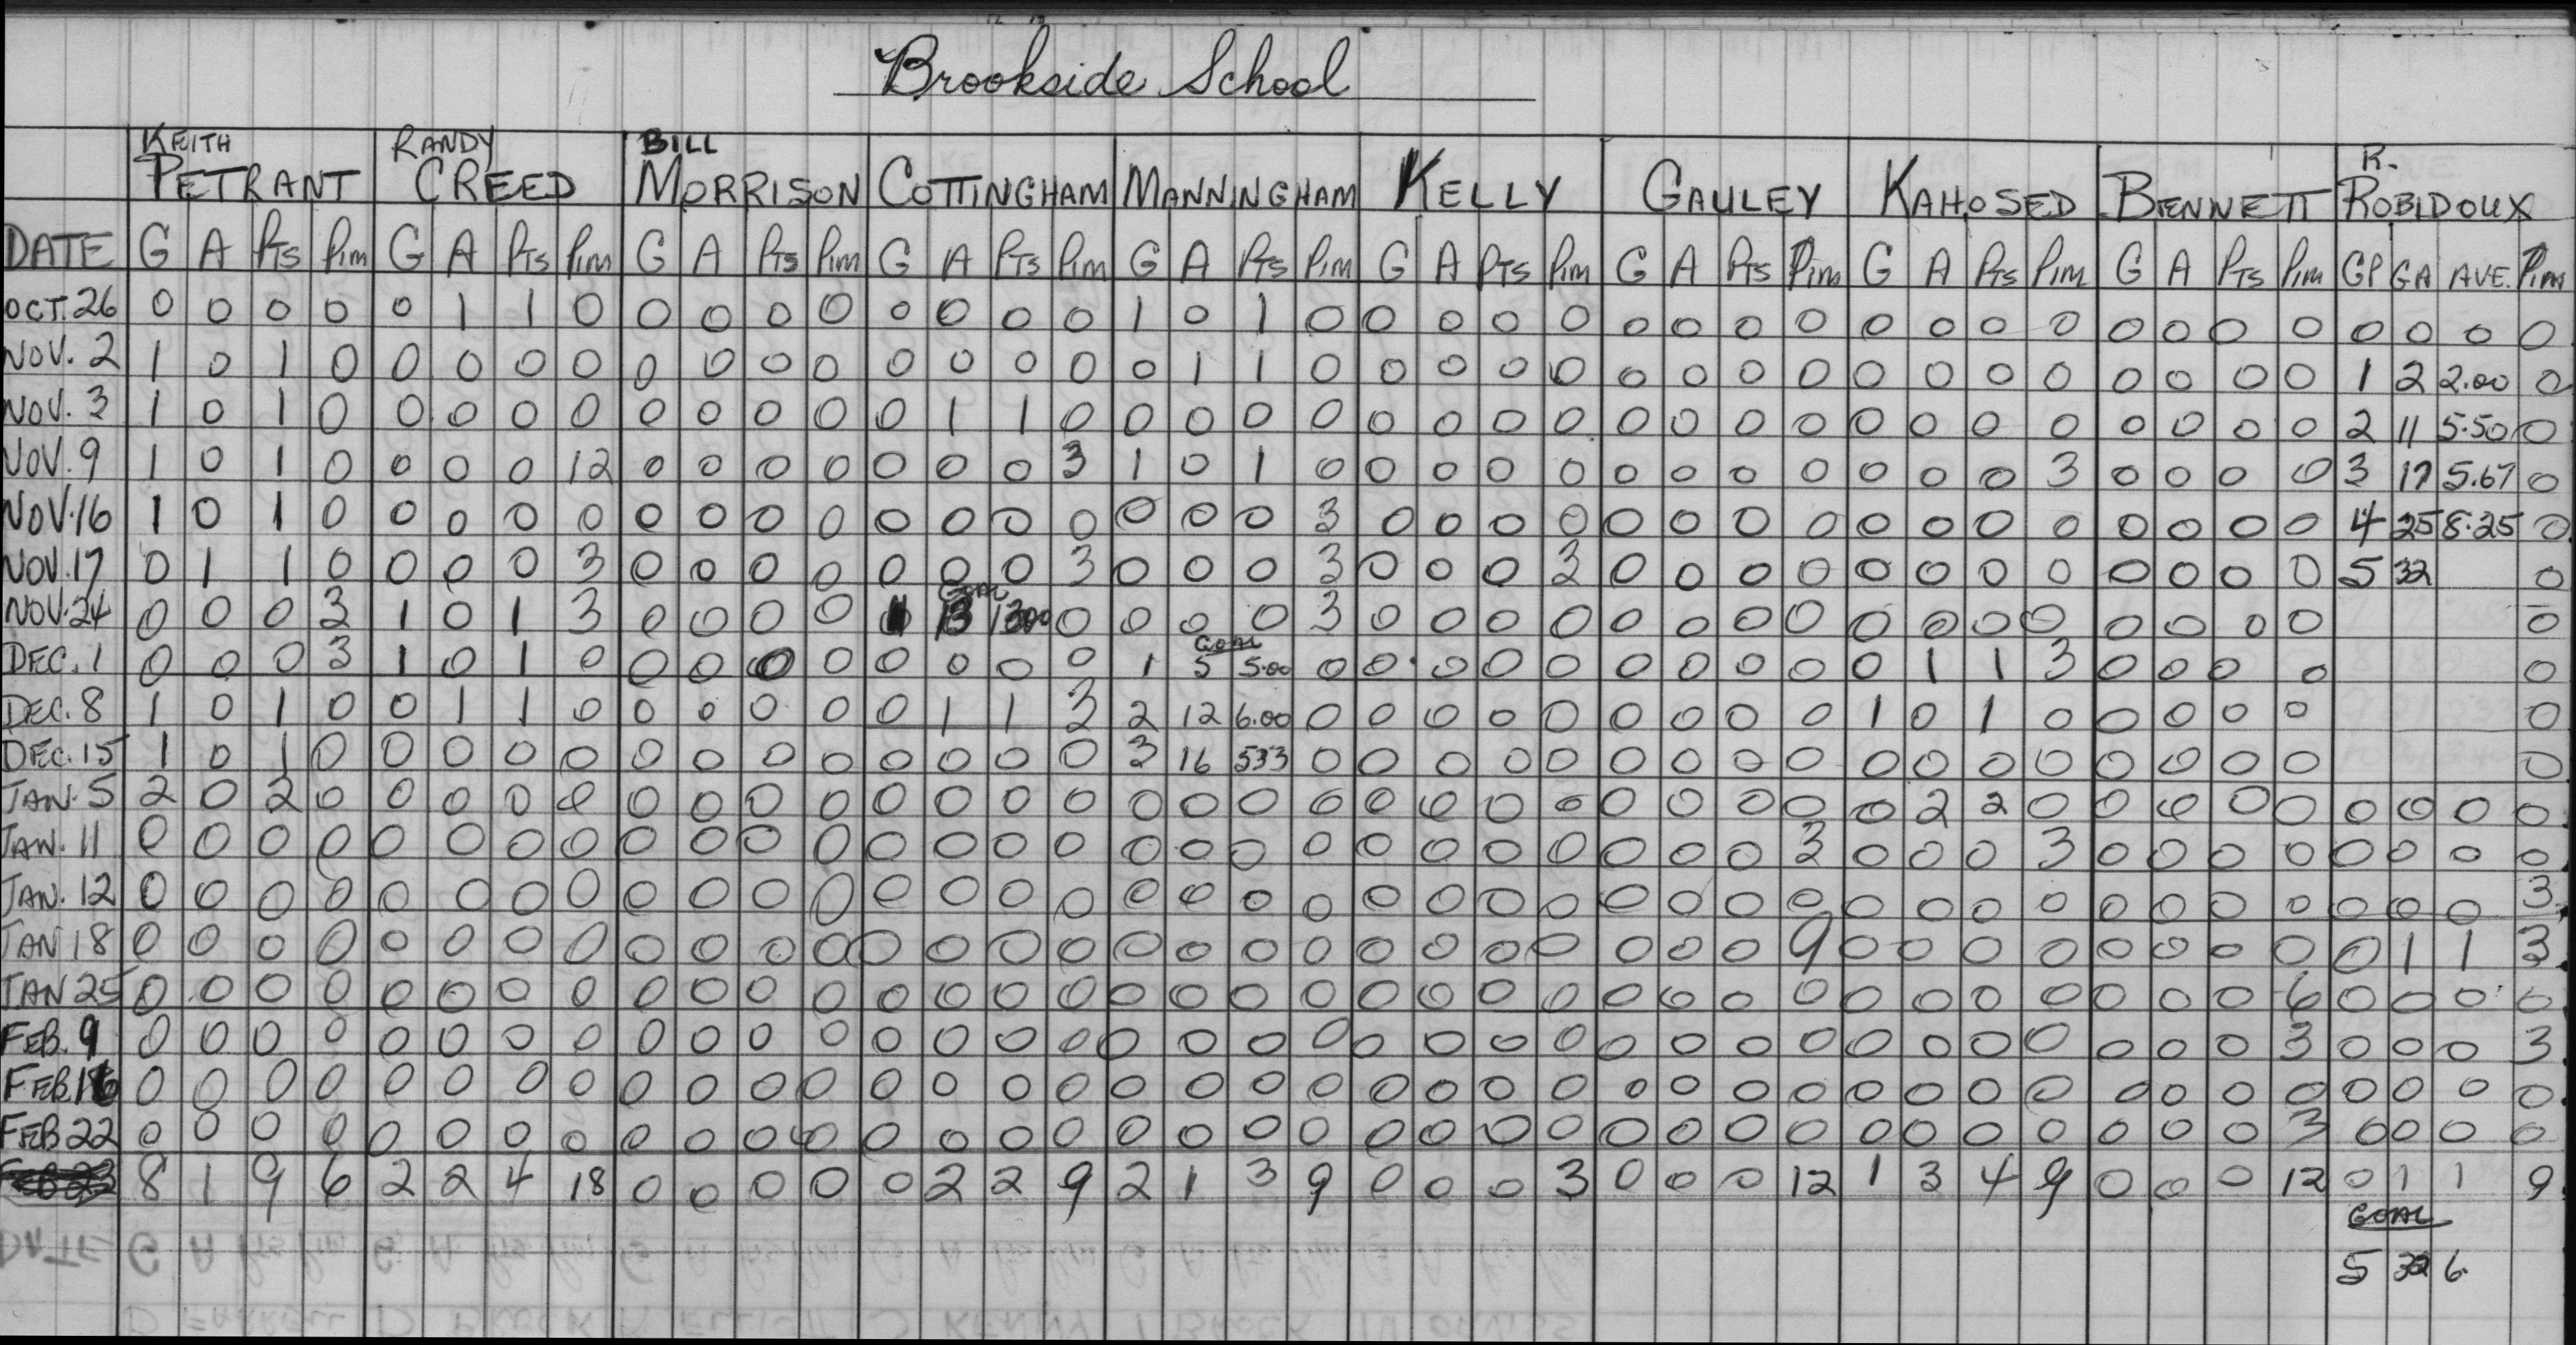 Brookside School
KEITH RANDY BILL R.
PETRANT CREED MORRISON COTTINGHAM MANNINGHAM KELLY GAULEY KAHOSED BENNETT ROBIDOUX
DATE G A PTS Pim G A PTS Pim G A PTS Pim G A PTS Pim G A PTS Pim G A PTS Pim G A PTS Pim G A PTS Pim G A PTS Pim GP GA AVE. Pim
OCT. 26 0 0 0 0 0 1 1 0 0 0 0 0 0 0 0 0 1 0 1 0 0 0 0 0 0 0 0 0 0 0 0 0 0 0 0 0 0 0 0 0
NOV. 2 1 0 1 0 0 0 0 0 0 0 0 0 0 0 0 0 0 1 1 0 0 0 0 0 0 0 0 0 0 0 0 0 0 0 0 0 1 2 2.00 0
NOV. 3 1 0 1 0 0 0 0 0 0 0 0 0 0 1 1 0 0 0 0 0 0 0 0 0 0 0 0 0 0 0 0 0 0 0 0 0 2 11 5.50 0
NOV. 9 1 0 1 0 0 0 0 12 0 0 0 0 0 0 0 3 1 0 1 0 0 0 0 0 0 0 0 0 0 0 0 3 0 0 0 0 3 17 5.67 0
NOV. 16 1 0 1 0 0 0 0 0 0 0 0 0 0 0 0 0 0 0 0 3 0 0 0 0 0 0 0 0 0 0 0 0 0 0 0 0 4 25 8.25 0
NOV. 17 0 1 1 0 0 0 0 3 0 0 0 0 0 0 0 3 0 0 0 3 0 0 0 3 0 0 0 0 0 0 0 0 0 0 0 0 5 32 0
GOAL
NOV. 24 0 0 0 3 1 0 1 3 0 0 0 0 1 13 1300 0 0 0 0 3 0 0 0 0 0 0 0 0 0 0 0 0 0 0 0 0 0
GOAL
DEC. 1 0 0 0 3 1 0 1 0 0 0 0 0 0 0 0 0 1 5 5.00 0 0 0 0 0 0 0 0 0 0 1 1 3 0 0 0 0 0
DEC. 8 1 0 1 0 0 1 1 0 0 0 0 0 0 1 1 3 2 12 6.00 0 0 0 0 0 0 0 0 0 1 0 1 0 0 0 0 0 0
DEC. 15 1 0 1 0 0 0 0 0 0 0 0 0 0 0 0 0 3 16 533 0 0 0 0 0 0 0 0 0 0 0 0 0 0 0 0 0 0
JAN. 5 2 0 2 0 0 0 0 0 0 0 0 0 0 0 0 0 0 0 0 0 0 0 0 0 0 0 0 0 0 2 2 0 0 0 0 0 0 0 0 0
JAN. 11 0 0 0 0 0 0 0 0 0 0 0 0 0 0 0 0 0 0 0 0 0 0 0 0 0 0 0 3 0 0 0 3 0 0 0 0 0 0 0 0
JAN. 12 0 0 0 0 0 0 0 0 0 0 0 0 0 0 0 0 0 0 0 0 0 0 0 0 0 0 0 0 0 0 0 0 0 0 0 0 0 0 0 3
JAN 18 0 0 0 0 0 0 0 0 0 0 0 0 0 0 0 0 0 0 0 0 0 0 0 0 0 0 0 9 0 0 0 0 0 0 0 0 0 1 1 3
JAN 25 0 0 0 0 0 0 0 0 0 0 0 0 0 0 0 0 0 0 0 0 0 0 0 0 0 0 0 0 0 0 0 0 0 0 0 6 0 0 0 0
FEB. 9 0 0 0 0 0 0 0 0 0 0 0 0 0 0 0 0 0 0 0 0 0 0 0 0 0 0 0 0 0 0 0 0 0 0 0 3 0 0 0 3
FEB. 16 0 0 0 0 0 0 0 0 0 0 0 0 0 0 0 0 0 0 0 0 0 0 0 0 0 0 0 0 0 0 0 0 0 0 0 0 0 0 0 0
FEB 22 0 0 0 0 0 0 0 0 0 0 0 0 0 0 0 0 0 0 0 0 0 0 0 0 0 0 0 0 0 0 0 0 0 0 0 3 0 0 0 0
8 1 9 6 2 2 4 18 0 0 0 0 0 2 2 9 2 1 3 9 0 0 0 3 0 0 0 12 1 3 4 9 0 0 0 12 0 1 1 9
GOAL
5 32 6.